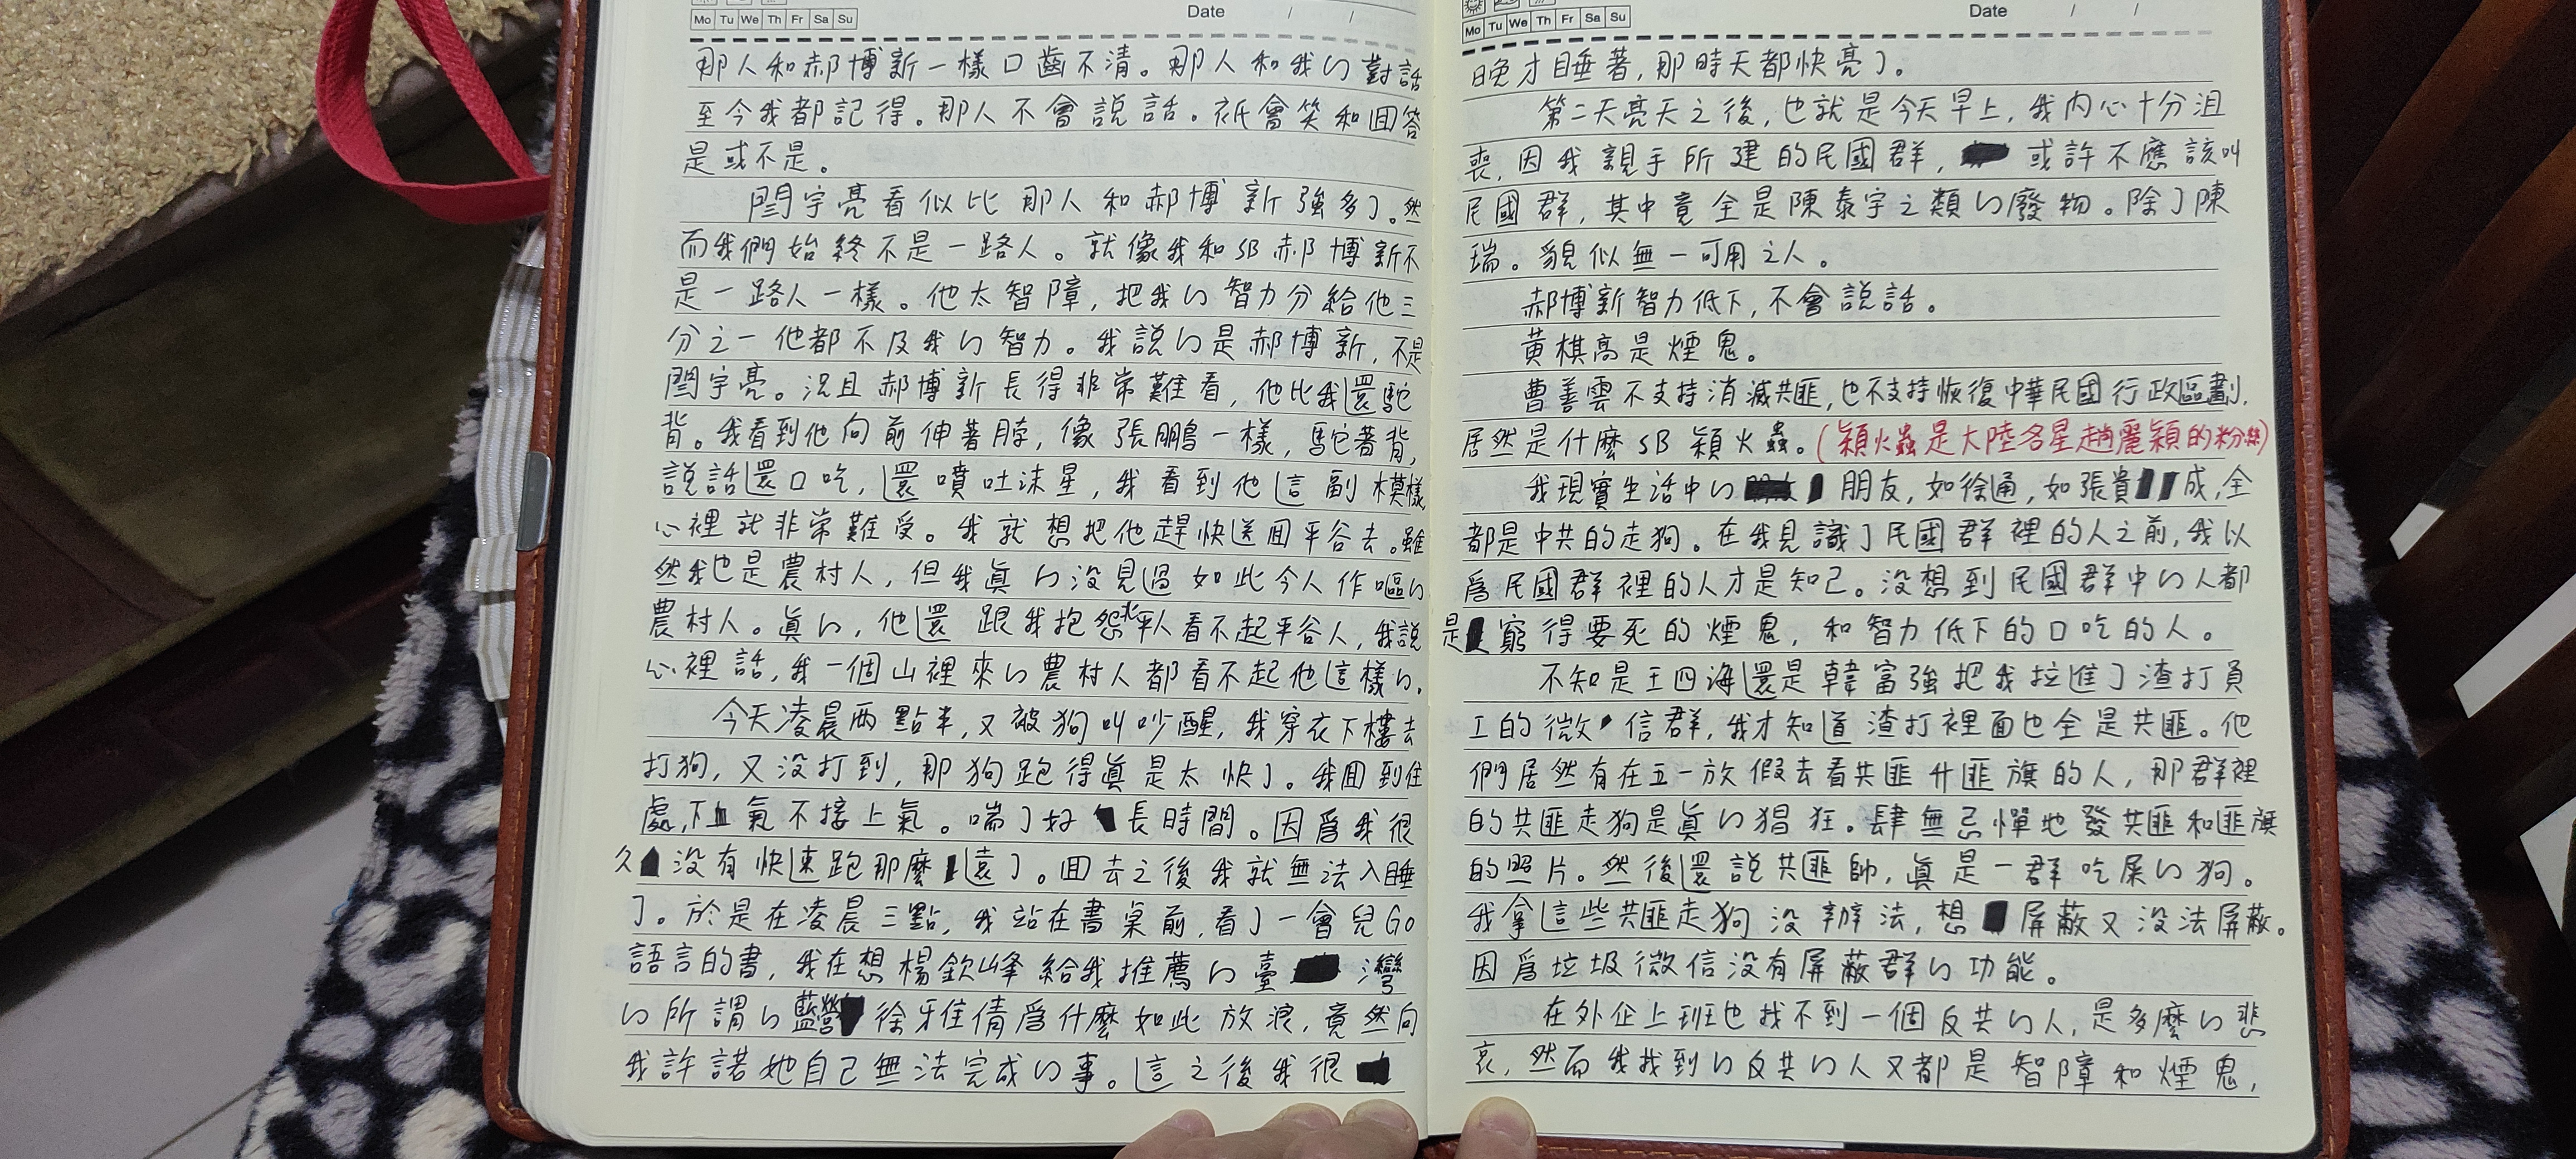 Mo Tu We Th Fr Sa Su Date / /
那人和郝博新一樣口齒不清。那人和我的對話
至今我都記得。那人不會說話。祇會笑和回答
是或不是。
閆宇亮看似比那人和郝博新強多了。然
而我們始終不是一路人。就像我和SB郝博新不
是一路人一樣。他太智障，把我的智力分給他三
分之一他都不及我的智力。我說的是郝博新，不是
閆宇亮。況且郝博新長得非常難看，他比我還駝
背。我看到他向前伸著脖，像張鵬一樣，駝著背，
說話還口吃，還噴吐沫星，我看到他這副模樣
心裡就非常難受。我就想把他趕快送回平谷去。雖
然我也是農村人，但我眞的沒見過如此令人作嘔的
農村人。眞的，他還跟我抱怨北平人看不起平谷人，我說
心裡話，我一個山裡來的農村人都看不起他這樣的。
今天凌晨兩點半，又被狗叫吵醒，我穿衣下樓去
打狗，又沒打到，那狗跑得眞是太快了。我回到住
處，下氣不接上氣。喘了好長時間。因爲我很
久沒有快速跑那麼遠了。回去之後我就無法入睡
了。於是在凌晨三點，我站在書桌前，看了一會兒GO
語言的書，我在想楊欽峰給我推薦的臺灣
的所謂的藍營徐雅倩爲什麼如此放浪，竟然向
我許諾她自己無法完成的事。這之後我很
Mo Tu We Th Fr Sa Su Date / /
晚才睡著，那時天都快亮了。
第二天亮天之後，也就是今天早上，我內心十分沮
喪，因我親手所建的民國群，或許不應該叫
民國群，其中竟全是陳泰宇之類的廢物。除了陳
瑞。貌似無一可用之人。
郝博新智力低下，不會說話。
黃棋高是煙鬼。
曹善雲不支持消滅共匪，也不支持恢復中華民國行政區劃，
居然是什麼SB穎火蟲。（穎火蟲是大陸名星趙麗穎的粉絲）
我現實生活中的朋友，如徐通，如張貴成，全
都是中共的走狗。在我見識了民國群裡的人之前，我以
爲民國群裡的人才是知己。沒想到民國群中的人都
是窮得要死的煙鬼，和智力低下的口吃的人。
不知是王四海還是韓富強把我拉進了渣打員
工的微信群，我才知道渣打裡面也全是共匪。他
們居然有在五一放假去看共匪升匪旗的人，那群裡
的共匪走狗是眞的猖狂。肆無忌憚地發共匪和匪旗
的照片。然後還說共匪帥，眞是一群吃屎的狗。
我拿這些共匪走狗沒辦法，想屏蔽又沒法屏蔽。
因爲垃圾微信沒有屏蔽群的功能。
在外企上班也找不到一個反共的人，是多麼的悲
哀，然而我找到的反共的人又都是智障和煙鬼，